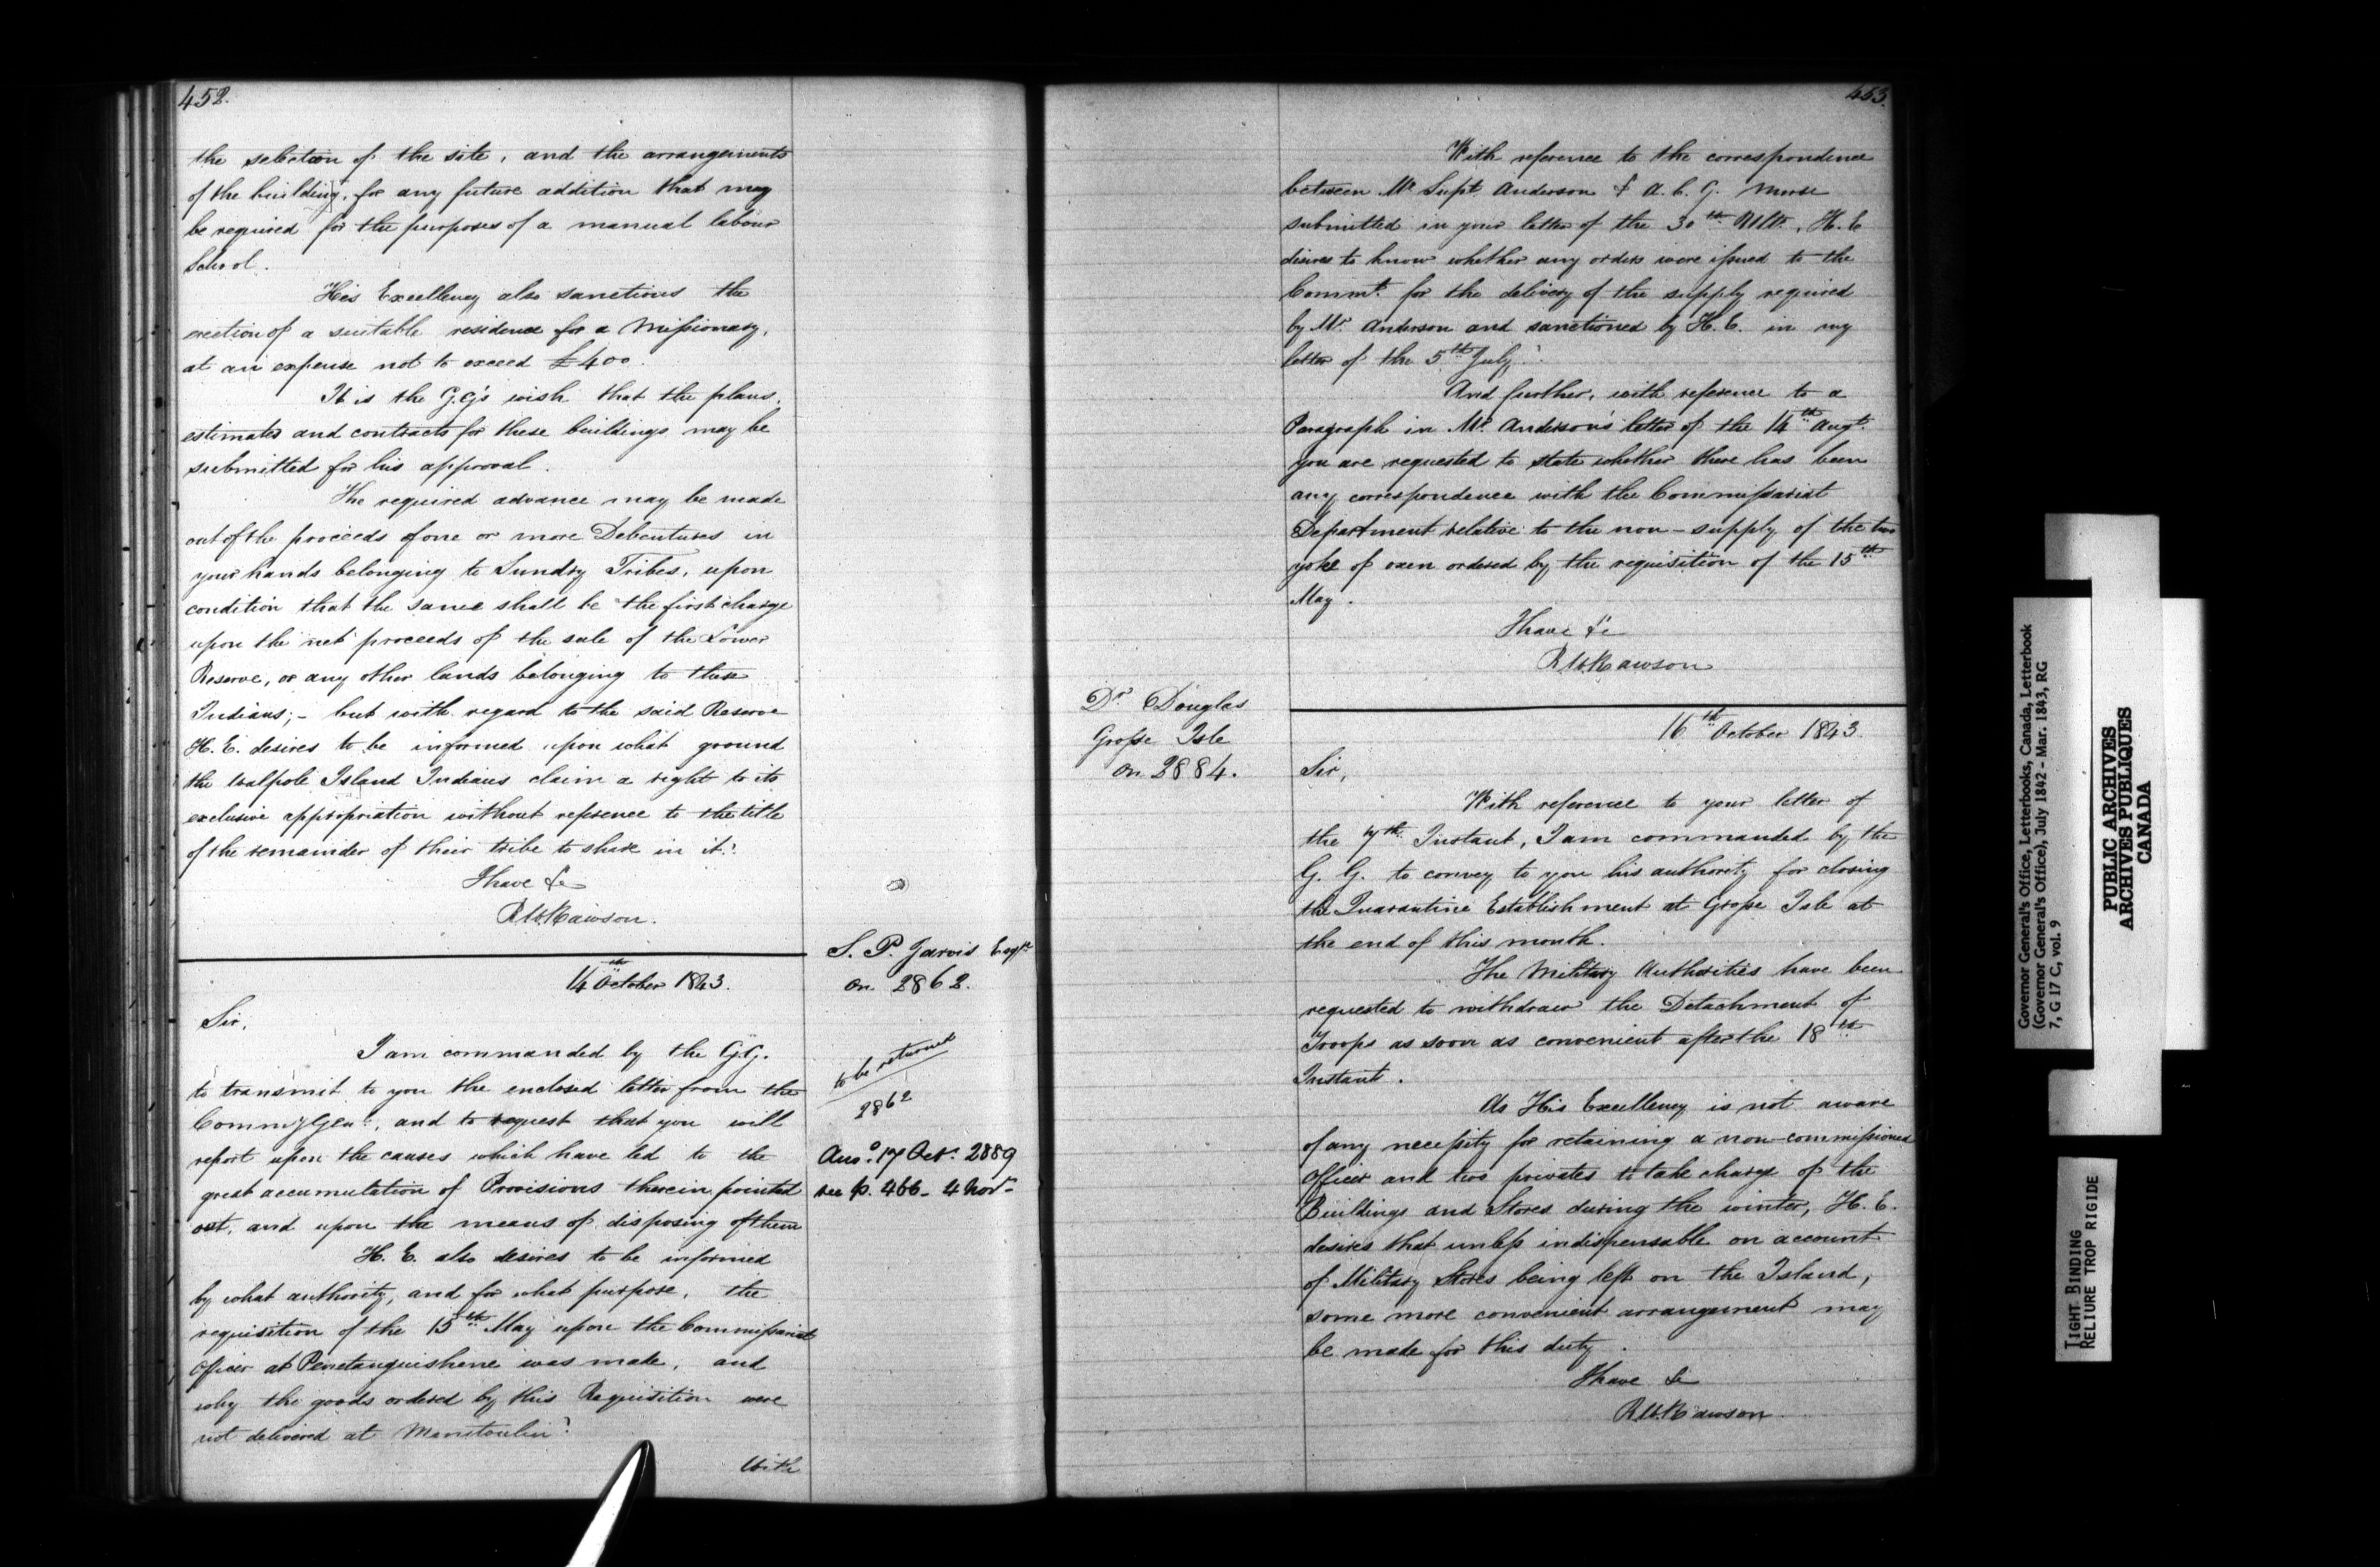 452.
the selection of the site, and the arrangements
of the building, for any future addition that may
be required for the purposes of a manual labour
School.
His Excellency also sanctions the
erection of a suitable residence for a Missionary,
at an expense not to exceed £400.
It is the G.G's wish that the plans,
estimates and contracts for these buildings may be
submitted for his approval.
The required advance may be made
out of the proceeds of one or more Debentures in
your hands belonging to Sundry Tribes, upon
condition that the same shall be the first charge
upon the net proceeds of the sale of the Lower
Reserve, or any other lands belonging to these
Indians; - but with regard to the said Reserve
H. E. desires to be informed upon what ground
the Walpole Island Indians claim a right to its
exclusive appropriation without reference to the title
of the remainder of their tribe to share in it?
I have &c
R W Rawson.
S. P. Jarvis Esqr.
on 2862.
14th October 1843.
Sir,
I am commanded by the G.G.
to transmit to you the enclosed letter from the
Commy Genl., and to request that you will
report upon the causes which have led to the
great accumulation of Provisions therein pointed
out, and upon the means of disposing of them
to be returned
2862
Ansd. 17 Oct. 2889
see p. 466 - 4 Novr.
H. E. also desires to be informed
by what authority, and for what purpose, the
requisition of the 15th May upon the Commissariat
Officer at Penetanguishene was made, and
why the goods ordered by this Requisition were
not delivered at Manitoulin?
With
453.
With reference to the correspondence
between Mr Supt. Anderson & A. C. G. Morse
submitted in your letter of the 30th Ulto., H. E
desires to know whether any orders were issued to the
Commt. for the delivery of the supply required
by Mr. Anderson and sanctioned by H. E. in my
letter of the 5th July?
And further, with reference to a
Paragraph in Mr. Anderson's letter of the 14th Augt.
you are requested to state whether there has been
any correspondence with the Commissariat
Department relative to the non-supply of the two
yoke of oxen ordered by the requisition of the 15th
May.
I have &c
R W Rawson
Dr Douglas
Grosse Isle
on 2884.
16th October 1843.
Sir,
With reference to your letter of
the 7th Instant, I am commanded by the
G. G. to convey to you his authority for closing
the Quarantine Establishment at Grosse Isle at
the end of this month.
The Military Authorities have been
requested to withdraw the Detachment of
Troops as soon as convenient after the 18th
Instant.
As His Excellency is not aware
of any necessity for retaining a non-commissioned
Officer and two privates to take charge of the
Buildings and Stores during the winter, H. E.
desires that unless indispensable on account
of Military Stores being left on the Island,
some more convenient arrangement may
be made for this duty.
I have &c
R W Rawson
Governor General's Office, Letterbooks, Canada, Letterbook
(Governor General's Office), July 1842 - Mar. 1843, RG
7, G 17 C, vol. 9
PUBLIC ARCHIVES
ARCHIVES PUBLIQUES
CANADA
TIGHT BINDING
RELIURE TROP RIGIDE